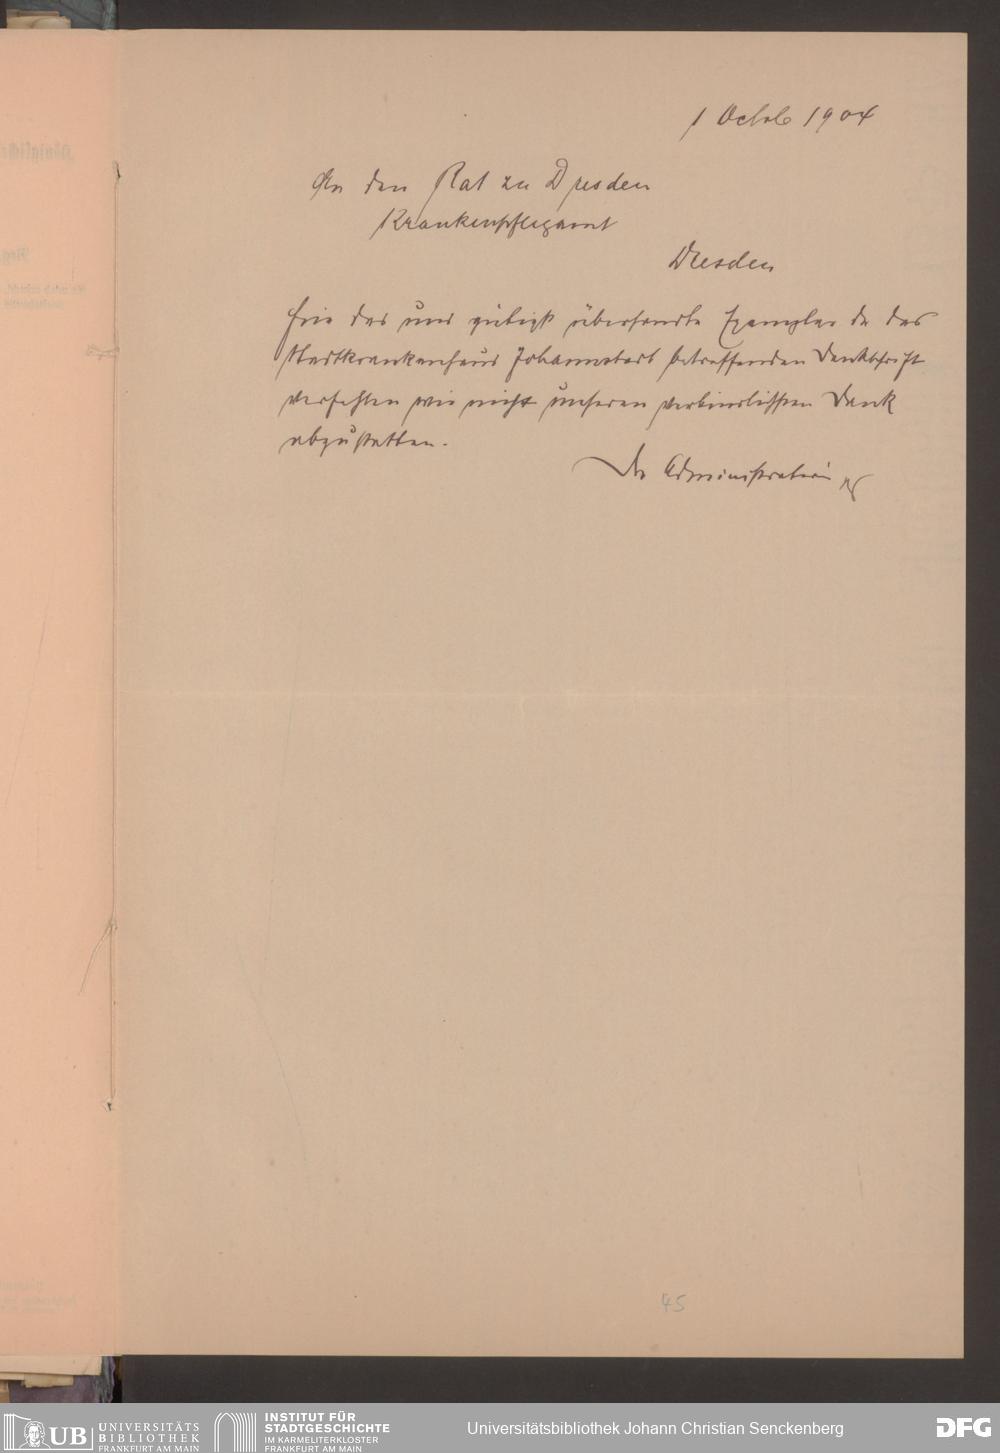 1 Octob 1904
An den Rat zu Dresden
Krankenpflegamt
Dresden
Für das uns gütigst übersandte Exemplar der das
Stadtkrankenhaus Johannstadt betreffenden Denkschrift
verfehlen wir nicht unseren verbindlichsten Dank
abzustatten.
Die Administration
45
UB UNIVERSITÄTS
BIBLIOTHEK
FRANKFURT AM MAIN
INSTITUT FÜR
STADTGESCHICHTE
IM KARMELITERKLOSTER
FRANKFURT AM MAIN
Universitätsbibliothek Johann Christian Senckenberg
DFG